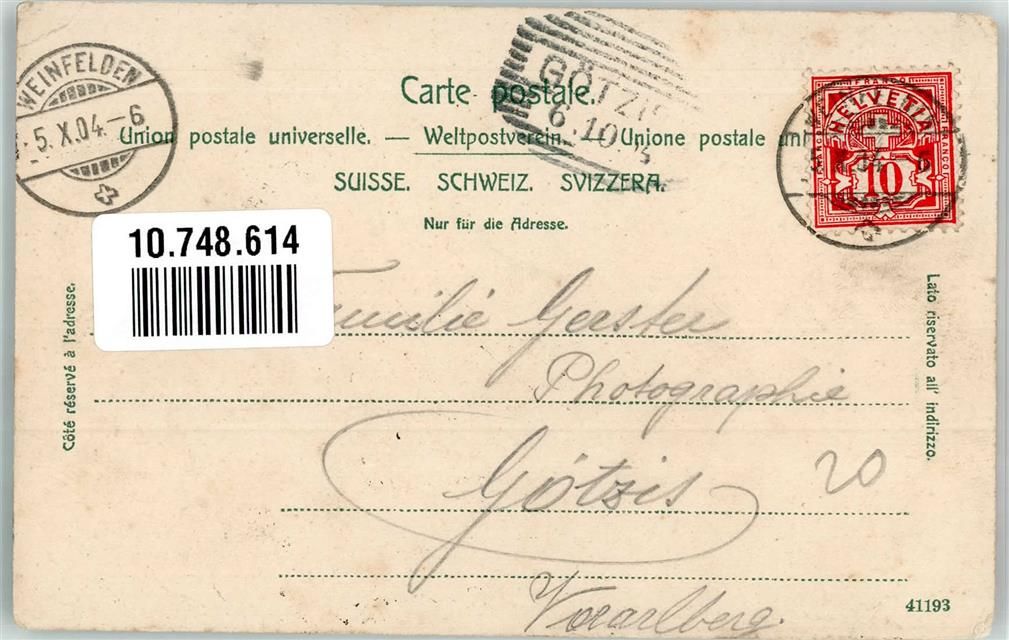 WEINFELDEN
5.X.04.-6
Carte postale.
GÖTZIS
6.10.
Union postale universelle. — Weltpostverein. — Unione postale uni
SUISSE. SCHWEIZ. SVIZZERA.
Nur für die Adresse.
FRANCO
HELVETIA
FRANCO
10
10.748.614
Côté réservé à l'adresse.
Lato riservato all' indirizzo.
Familie Geister
Photographie
Götzis
20
Vorarlberg.
41193